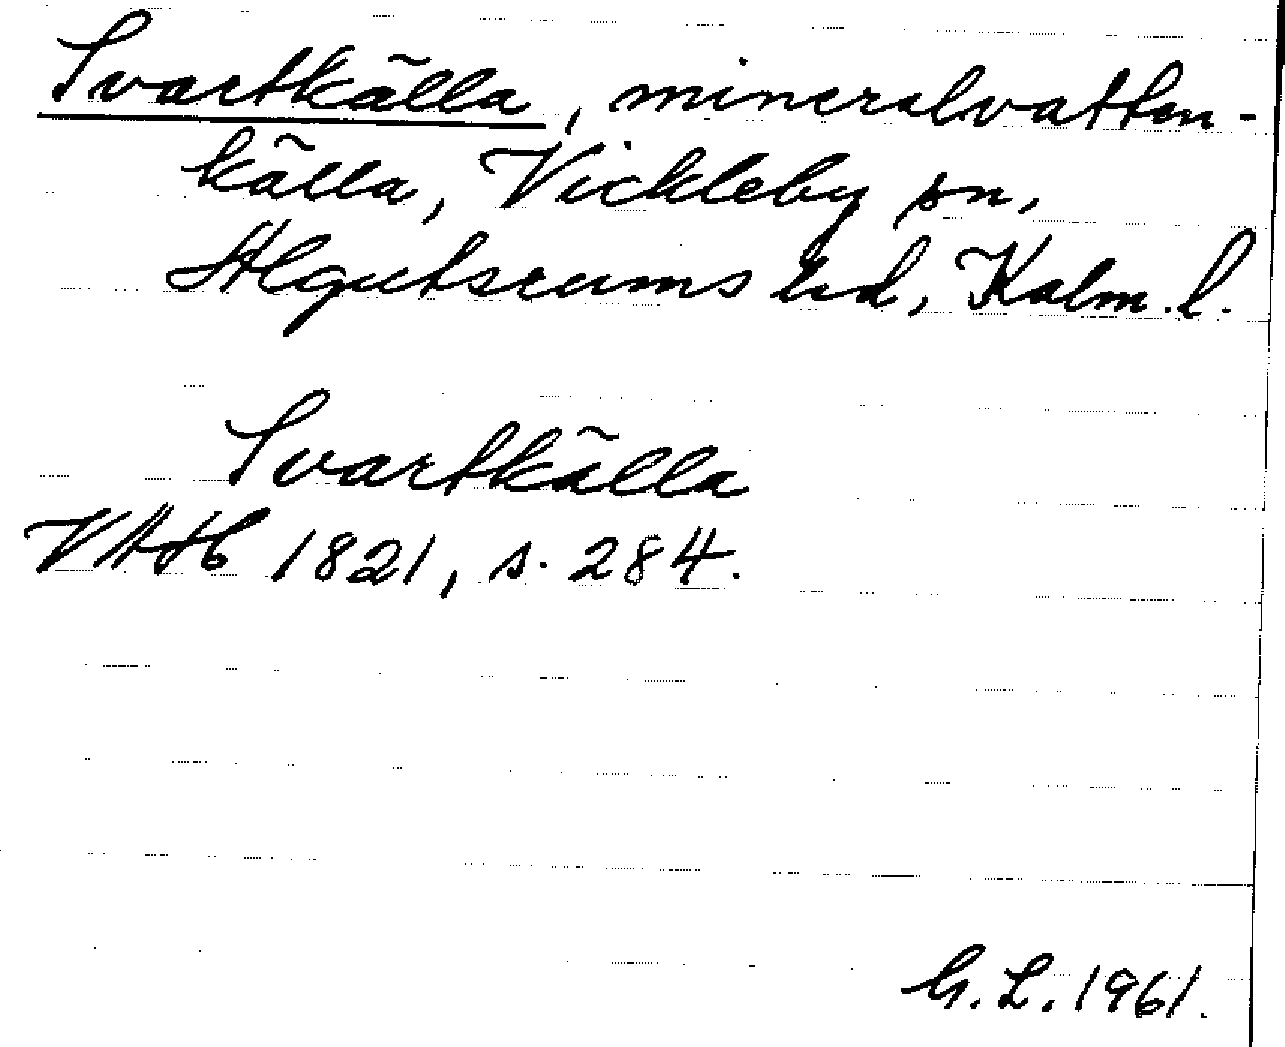 Svartkälla, mineralvatten-
källa, Vickleby sn,
Algutsrums hd, Kalm. l.
Svartkälla
VAH 1821, s. 284.
G. L. 1961.